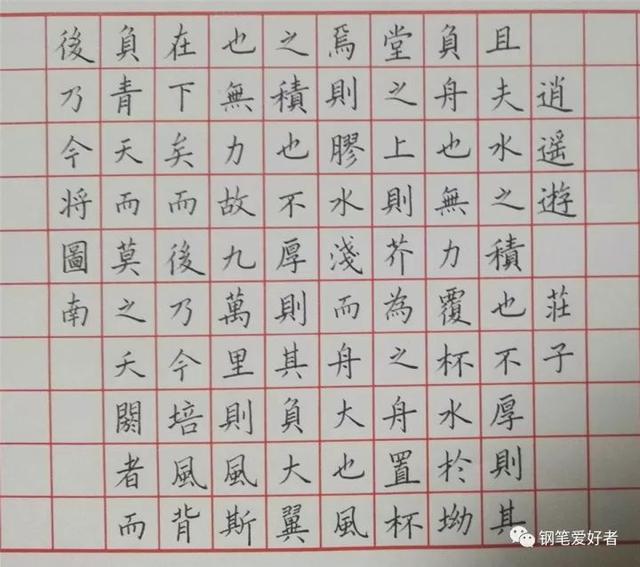 逍遥遊 莊子
且夫水之積也不厚則其
負舟也無力覆杯水於坳
堂之上則芥為之舟置杯
焉則膠水淺而舟大也風
之積也不厚則其負大翼
也無力故九萬里則風斯
在下矣而後乃今培風背
負青天而莫之夭閼者而
後乃今将圖南
钢笔爱好者